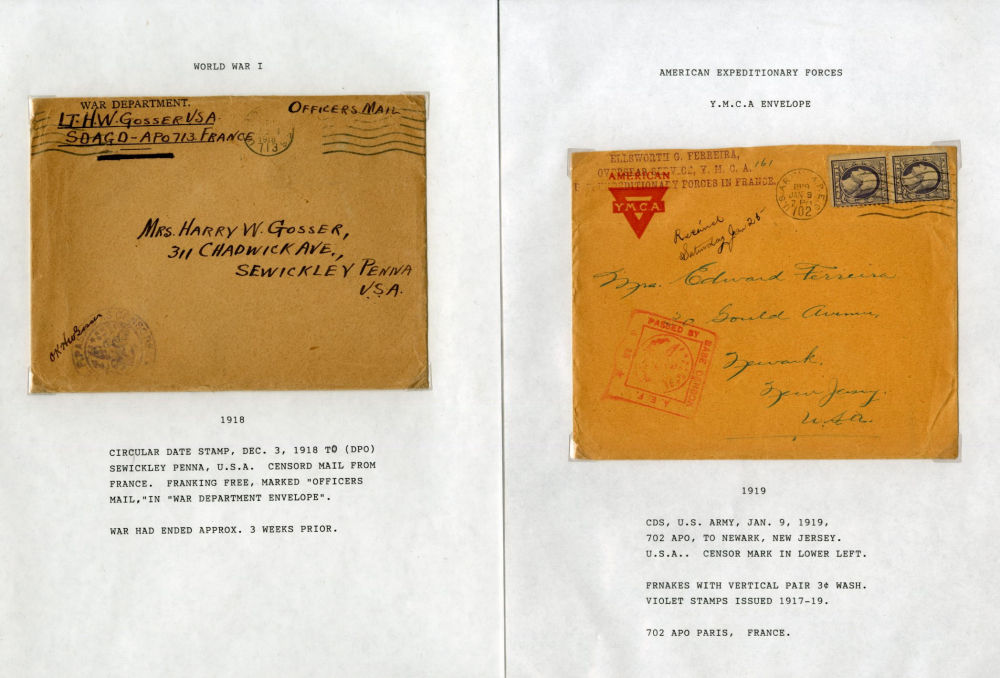 WORLD WAR I
WAR DEPARTMENT.
LT. H.W. GOSSER USA
SDAGD-APO 713. FRANCE
OFFICERS MAIL
1918
713
MRS. HARRY W. GOSSER,
311 CHADWICK AVE.,
SEWICKLEY PENNA
U.S.A.
OK HWGosser
1918
CIRCULAR DATE STAMP, DEC. 3, 1918 TO (DPO)
SEWICKLEY PENNA, U.S.A.  CENSORD MAIL FROM
FRANCE.  FRANKING FREE, MARKED "OFFICERS
MAIL,"IN "WAR DEPARTMENT ENVELOPE".
WAR HAD ENDED APPROX. 3 WEEKS PRIOR.
AMERICAN EXPEDITIONARY FORCES
Y.M.C.A ENVELOPE
ELLSWORTH G. FERREIRA,
OVERSEAS SERVICE, Y. M. C. A. 161
EXPEDITIONARY FORCES IN FRANCE.
AMERICAN
Y.M.C.A.
1919
JAN 9
7 PM
702
Received
Saturday Jan 25-
Mrs. Edward Ferreira
Gould Avenue,
Newark,
New Jersey.
U.S.A.
PASSED BY BASE CENSOR
A.E.F.
1919
CDS, U.S. ARMY, JAN. 9, 1919,
702 APO, TO NEWARK, NEW JERSEY.
U.S.A..  CENSOR MARK IN LOWER LEFT.
FRNAKES WITH VERTICAL PAIR 3¢ WASH.
VIOLET STAMPS ISSUED 1917-19.
702 APO PARIS,  FRANCE.